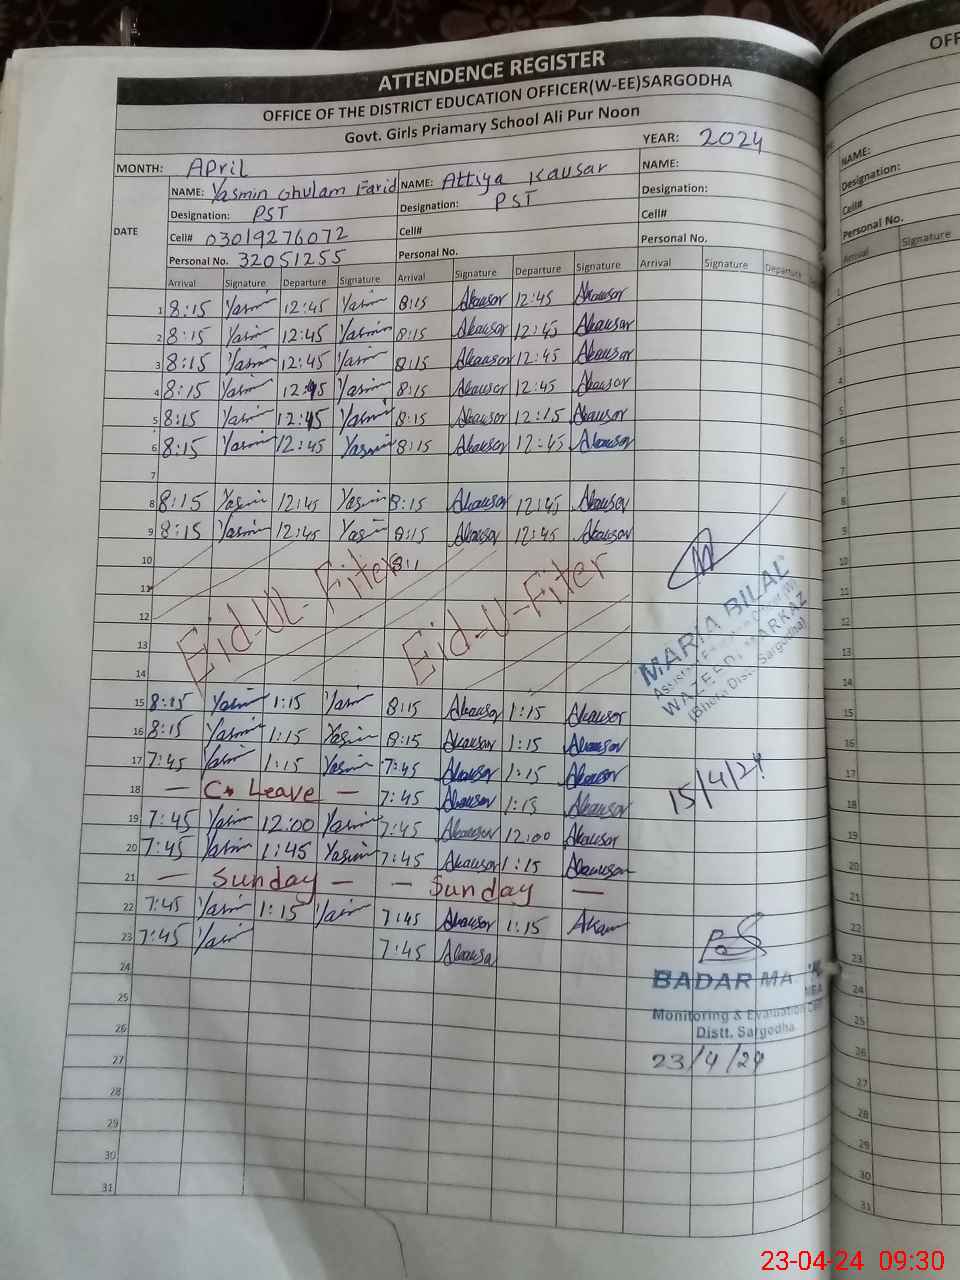 ATTENDENCE REGISTER
OFFICE OF THE DISTRICT EDUCATION OFFICER(W-EE)SARGODHA
Govt. Girls Priamary School Ali Pur Noon
MONTH: April YEAR: 2024
DATE NAME: Yasmin Ghulam Farid NAME: Attiya Kausar NAME:
Designation: PST Designation: PST Designation:
Cell# 03019276072 Cell# Cell#
Personal No. 32051255 Personal No. Personal No.
Arrival Signature Departure Signature Arrival Signature Departure Signature Arrival Signature Departure
1 8:15 Yasmin 12:45 Yasmin 8:15 Akausar 12:45 Akausar
2 8:15 Yasmin 12:45 Yasmin 8:15 Akausar 12:45 Akausar
3 8:15 Yasmin 12:45 Yasmin 8:15 Akausar 12:45 Akausar
4 8:15 Yasmin 12:45 Yasmin 8:15 Akausar 12:45 Akausar
5 8:15 Yasmin 12:45 Yasmin 8:15 Akausar 12:15 Akausar
6 8:15 Yasmin 12:45 Yasmin 8:15 Akausar 12:45 Akausar
7
8 8:15 Yasmin 12:45 Yasmin 8:15 Akausar 12:45 Akausar
9 8:15 Yasmin 12:45 Yasmin 8:15 Akausar 12:45 Akausar
10 8:1
11
12 Eid-UL-Fiter Eid-U-Fiter
13
14
15 8:15 Yasmin 1:15 Yasmin 8:15 Akausar 1:15 Akausar
16 8:15 Yasmin 1:15 Yasmin 8:15 Akausar 1:15 Akausar
17 7:45 Yasmin 1:15 Yasmin 7:45 Akausar 1:15 Akausar
18 — C. Leave — 7:45 Akausar 1:15 Akausar
19 7:45 Yasmin 12:00 Yasmin 7:45 Akausar 12:00 Akausar
20 7:45 Yasmin 1:45 Yasmin 7:45 Akausar 1:15 Akausar
21 — Sunday — — Sunday —
22 7:45 Yasmin 1:15 Yasmin 7:45 Akausar 1:15 Akau
23 7:45 Yasmin 7:45 Akausa
24
25
26
27
28
29
30
31
MARIA BILAL
Assistant Education Officer (W)
MARKAZ
(Bhera Distt. Sargodha)
15/4/24
BADAR
Monitoring & Evaluation
Distt. Sargodha
23/4/24
OFF
NAME:
Designation:
Cell#
Personal No.
Arrival Signature
1
2
3
4
5
6
7
8
9
10
11
12
13
14
15
16
17
18
19
20
21
22
23
24
25
26
27
28
29
30
31
23-04-24 09:30